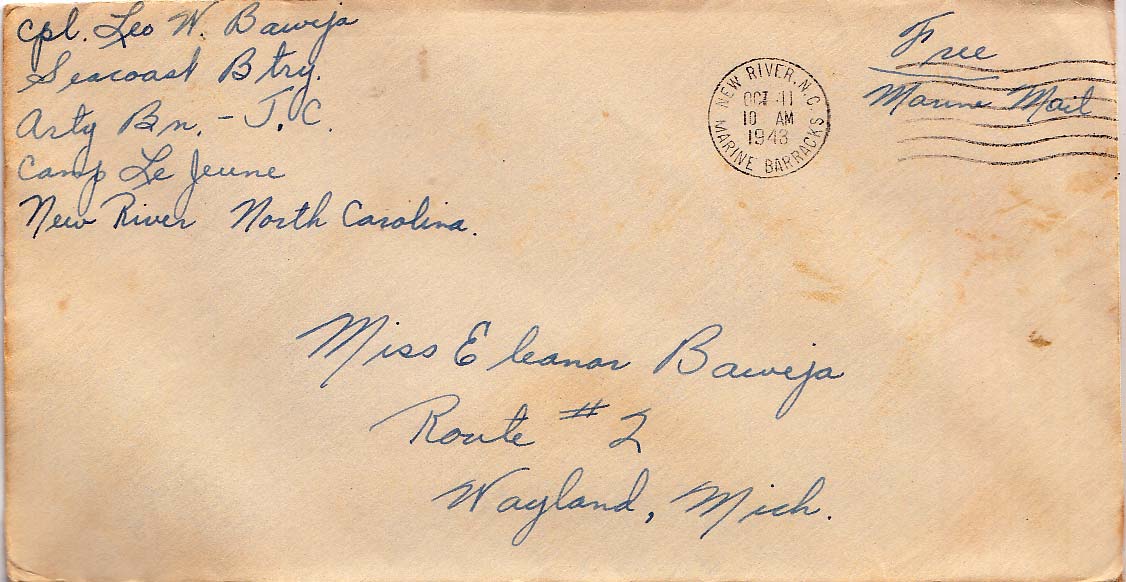 Cpl. Leo W. Baweja
Seacoast Btry.
Arty Bn. - T.C.
Camp Le Jeune
New River North Carolina.
NEW RIVER, N.C.
OCT 11
10 AM
1943
MARINE BARRACKS
Free
Marine Mail
Miss Eleanor Baweja
Route #2
Wayland, Mich.